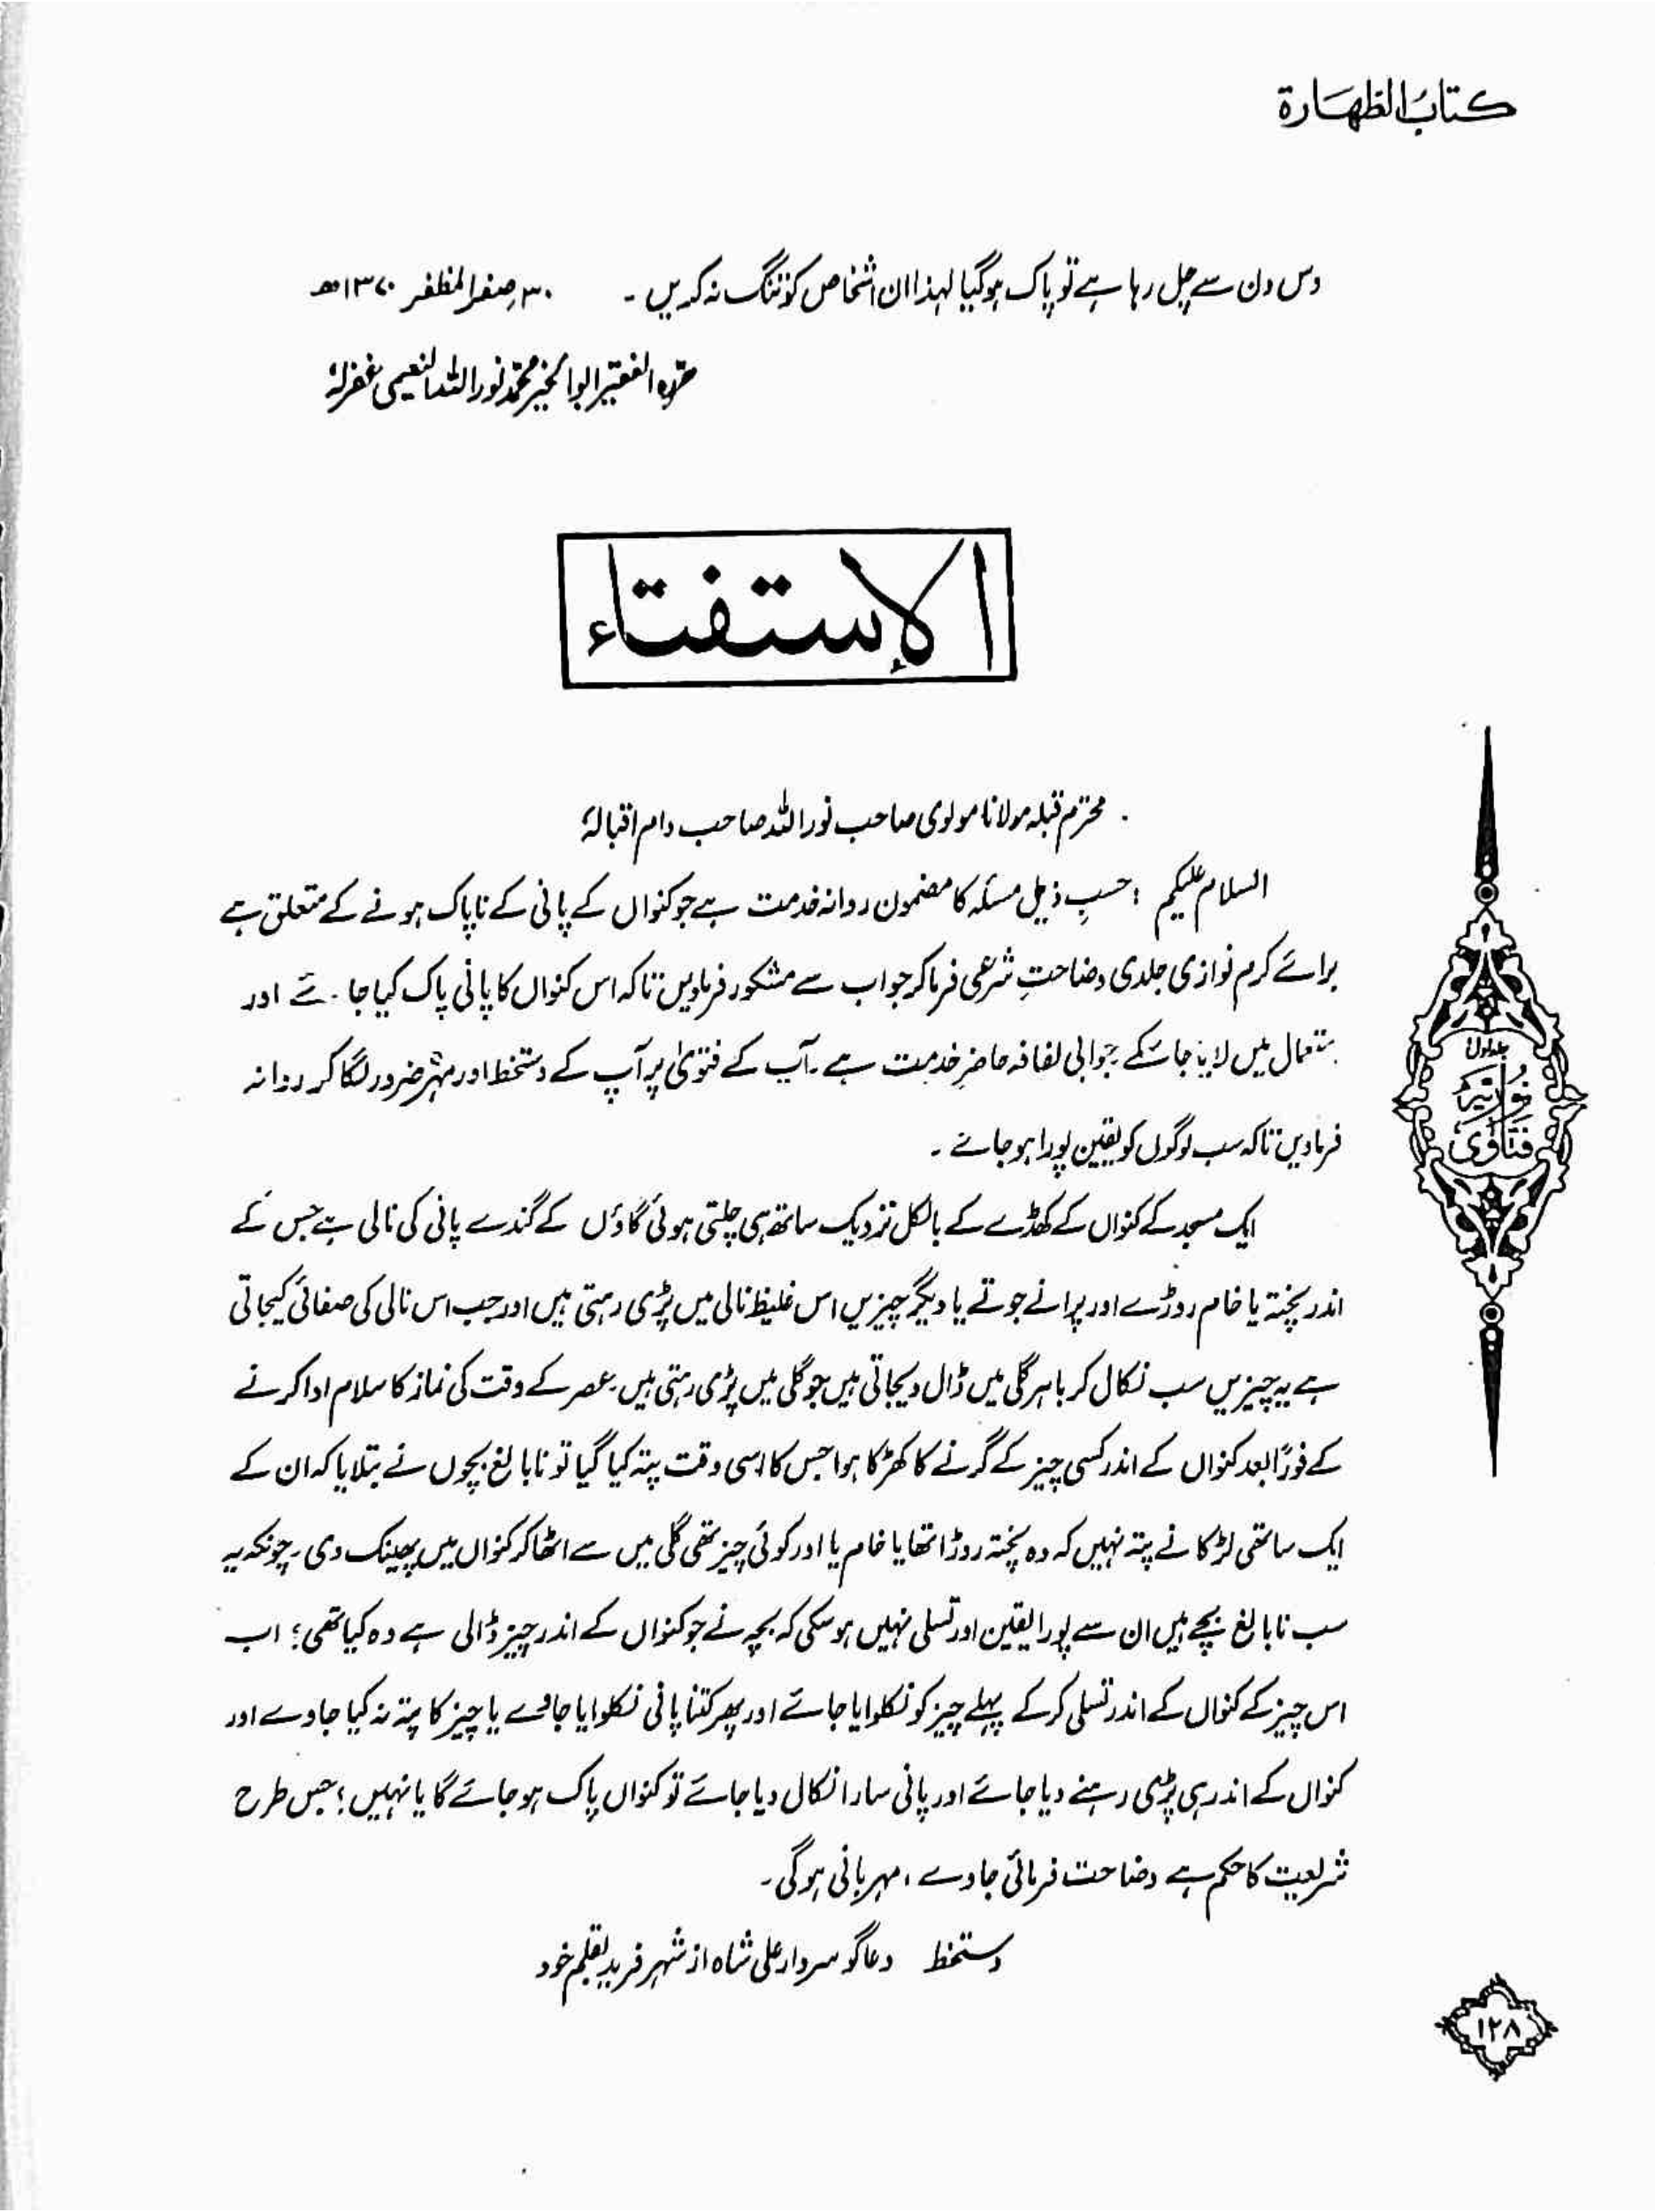 کتابُ الطّهَارة
دس دن سے چل رہا ہے تو پاک ہوگیا لہذا ان اشخاص کو تنگ نہ کریں ۔ ۳۰؍صفر المظفر ۱۳۷۰ھ
حرّرہ الفقیر ابوالخیر محمّد نوراللہ النعیمی غفرلہٗ
الإستفتاء
محترم قبلہ مولانا مولوی صاحب نوراللہ صاحب دام اقبالہٗ
السلام علیکم : حسبِ ذیل مسئلہ کا مضمون روانہ خدمت ہے جو کنواں کے پانی کے ناپاک ہونے کے متعلق ہے
برائے کرم نوازی جلدی وضاحتِ شرعی فرماکر جواب سے مشکور فرماویں تاکہ اس کنواں کا پانی پاک کیا جائے اور
ستعمال میں لایا جا سکے جوابی لفافہ حاضرِ خدمت ہے ۔ آپ کے فتویٰ پر آپ کے دستخط اور مہر ضرور لگا کر روانہ
فرماویں تاکہ سب لوگوں کو یقین پورا ہو جائے ۔
ایک مسجد کے کنواں کے کھڈے کے بالکل نزدیک ساتھ ہی چلتی ہوئی گاؤں کے گندے پانی کی نالی ہے جس کے
اندر پختہ یا خام روڑے اور پرانے جوتے یا دیگر چیزیں اس غلیظ نالی میں پڑی رہتی ہیں اور جب اس نالی کی صفائی کیجاتی
ہے یہ چیزیں سب نکال کر باہر گلی میں ڈال دیجاتی ہیں جو گلی میں پڑی رہتی ہیں ۔ عصر کے وقت کی نماز کا سلام ادا کرنے
کے فورًا بعد کنواں کے اندر کسی چیز کے گرنے کا کھڑکا ہوا جس کا اسی وقت پتہ کیا گیا تو نابالغ بچوں نے بتلایا کہ ان کے
ایک ساتھی لڑکا نے پتہ نہیں کہ وہ پختہ روڑا تھا یا خام یا اور کوئی چیز تھی گلی میں سے اٹھا کر کنواں میں پھینک دی ۔ چونکہ یہ
سب نابالغ بچے ہیں ان سے پورا یقین اور تسلی نہیں ہو سکی کہ بچہ نے جو کنواں کے اندر چیز ڈالی ہے وہ کیا تھی ؟ اب
اس چیز کے کنواں کے اندر تسلی کرکے پہلے چیز کو نکلوایا جائے اور پھر کتنا پانی نکلوایا جاوے یا چیز کا پتہ نہ کیا جاوے اور
کنواں کے اندر ہی پڑی رہنے دیا جائے اور پانی سارا نکال دیا جائے تو کنواں پاک ہو جائے گا یا نہیں ؟ جس طرح
شریعت کا حکم ہے وضاحت فرمائی جاوے ، مہربانی ہوگی ۔
دستخط دعاگو سردار علی شاہ از شہر فرید بقلم خود
جلد اول
فتاویٰ نوریہ
۱۲۸